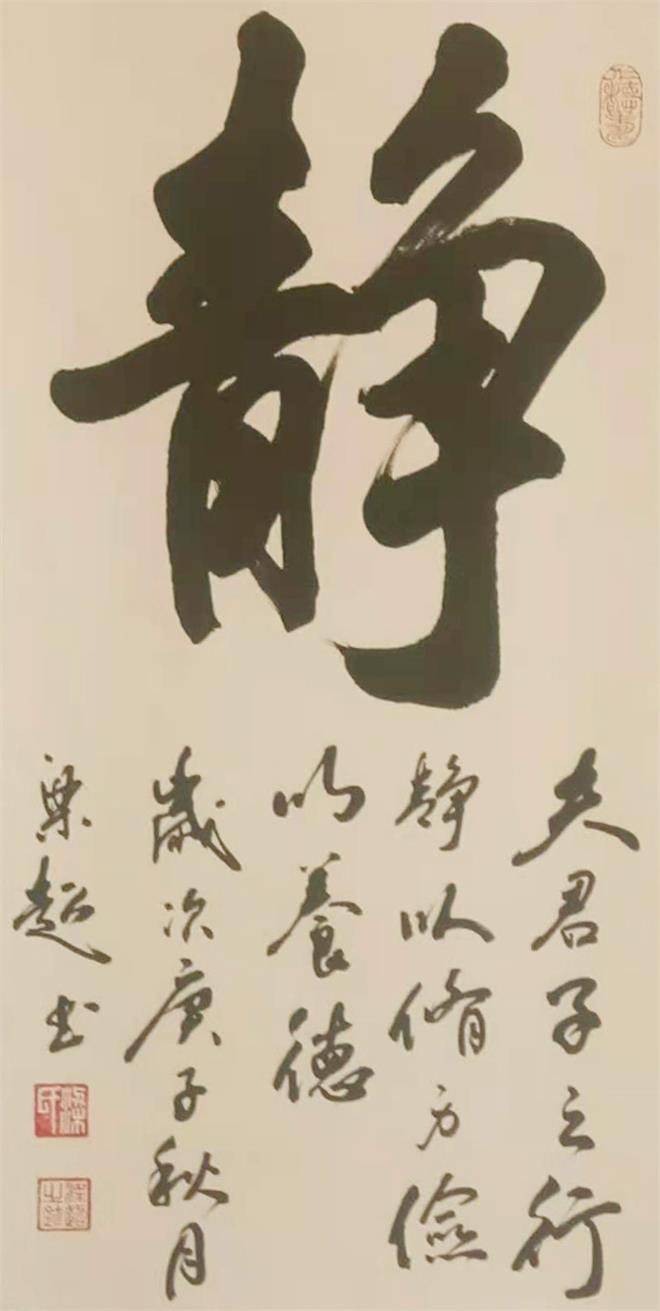 静
夫君子之行
静以脩身儉
以養德
歲次庚子秋月
梁超书
梁氏